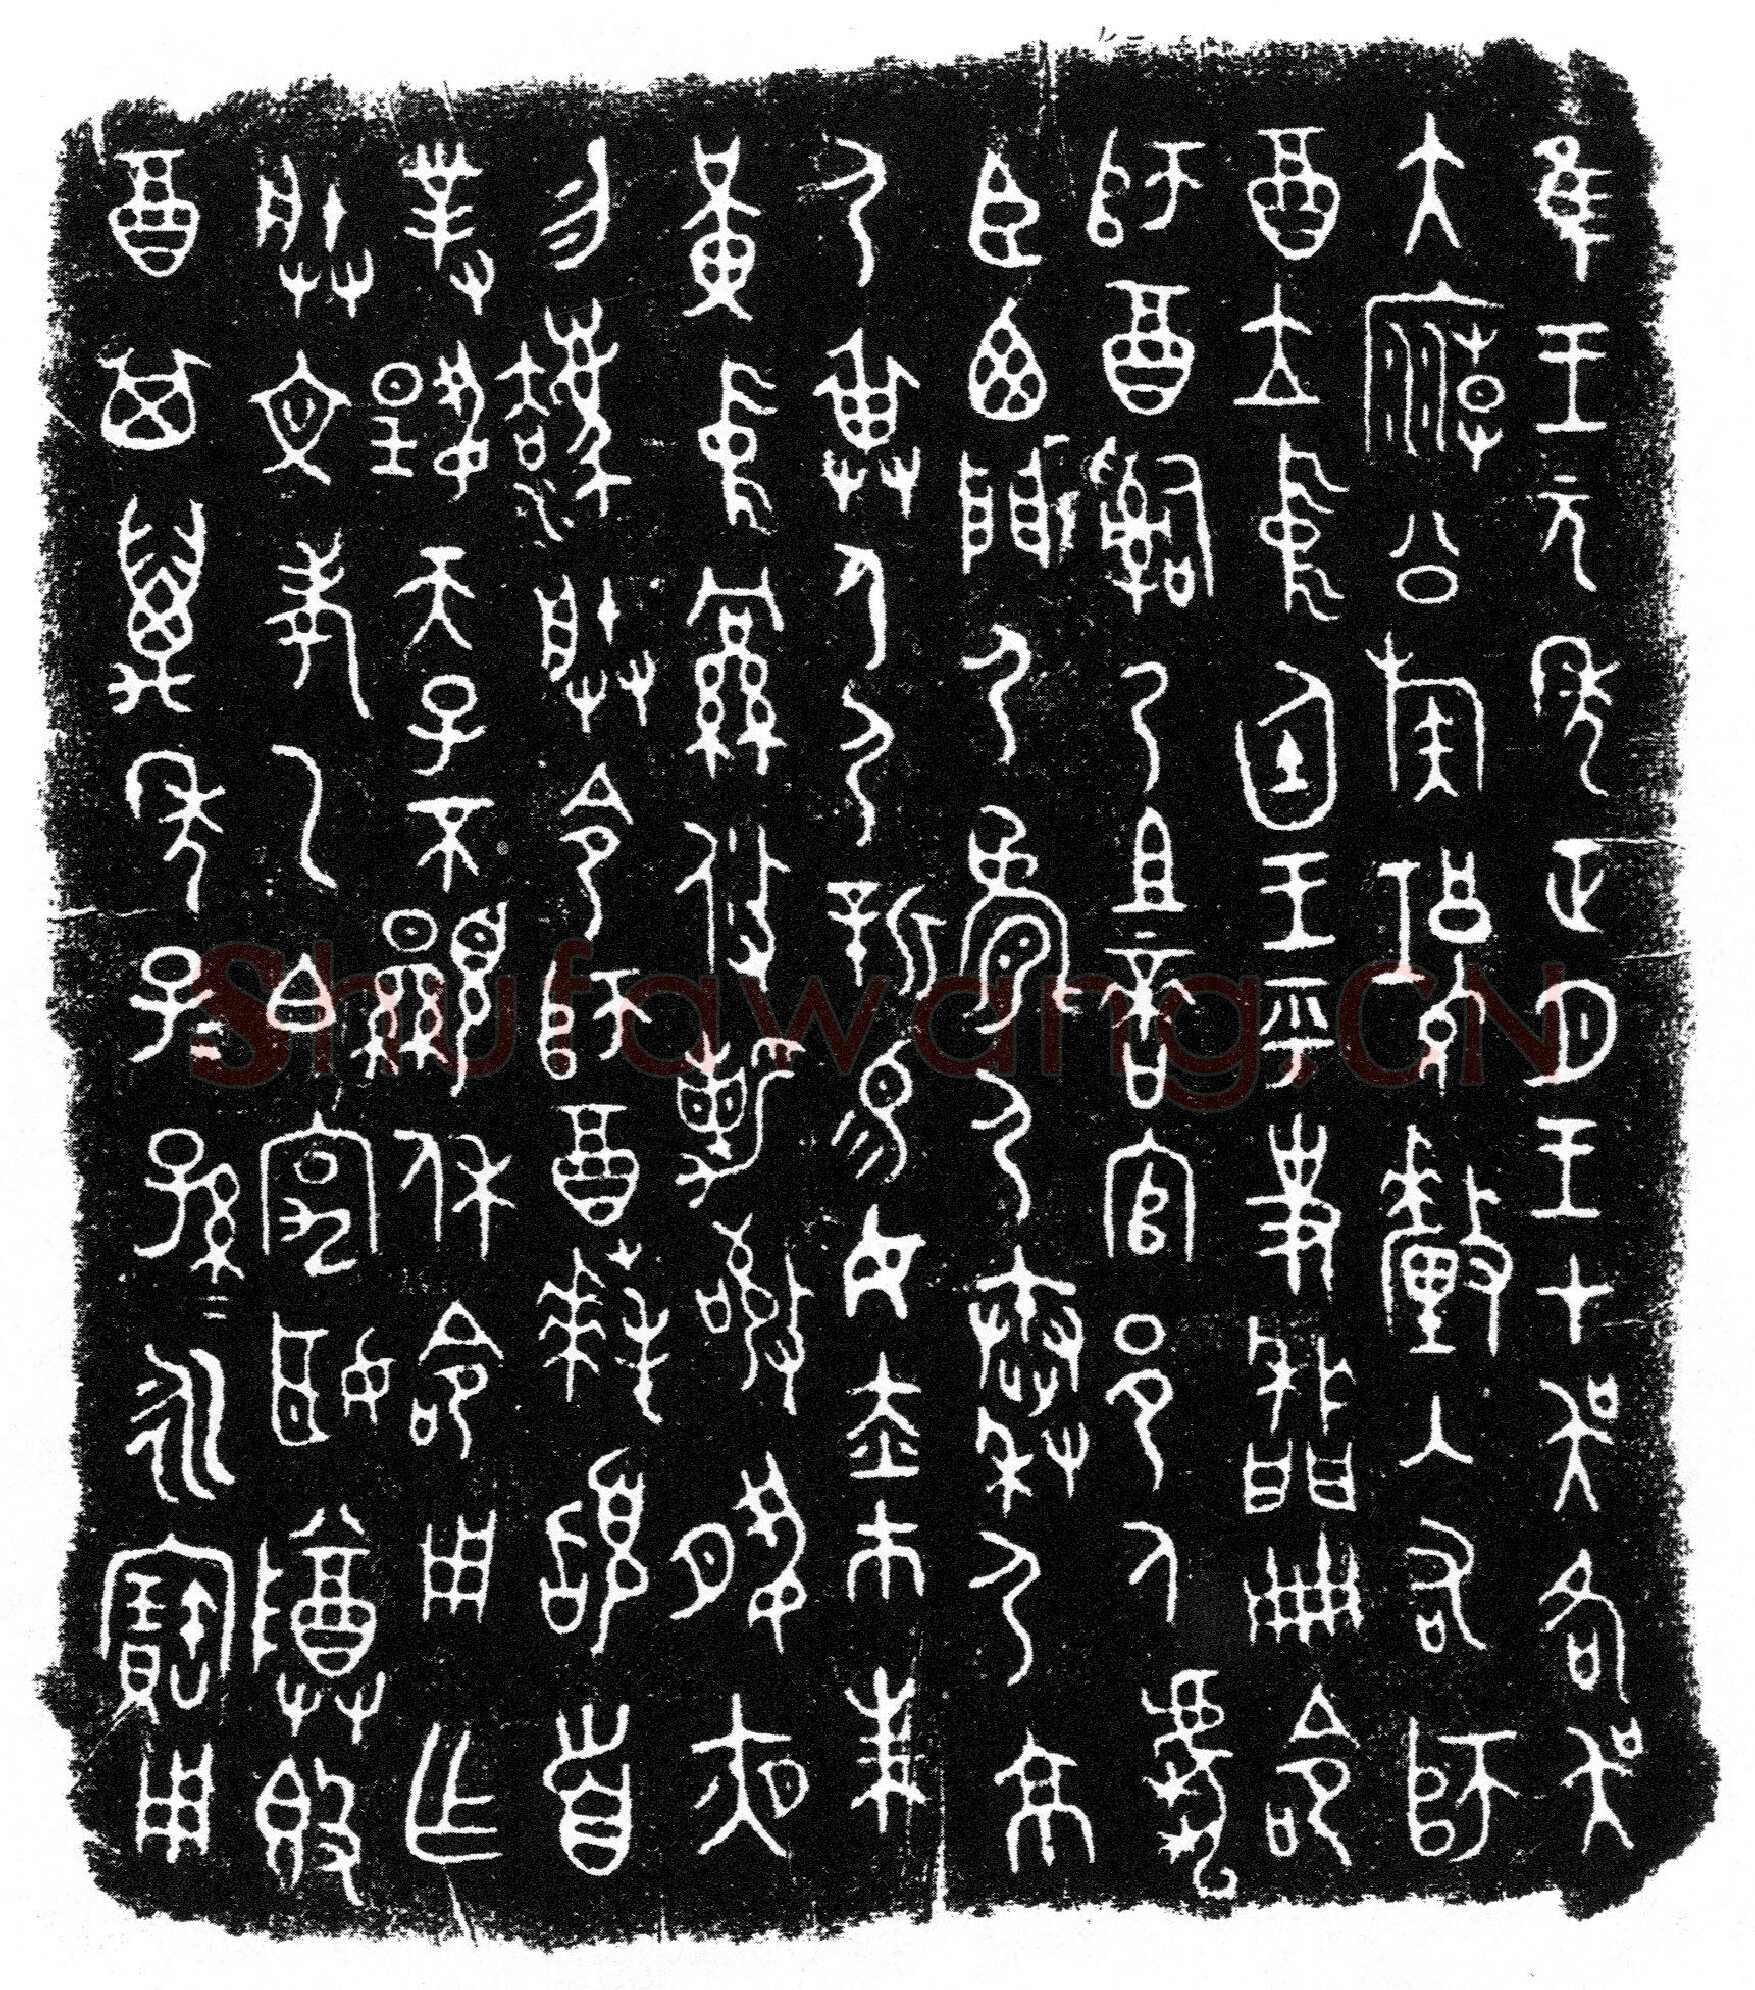 隹王元年正月王才吳各吳
大廟公族釐入右師
酉立中廷王乎史冊命
師酉𤔲乃且啻官邑人虎
臣西門尸尸秦尸京
尸身尸新易女赤巿朱
黃中攸勒敬夙夜
勿灋朕令師酉拜首
對揚天子不顯休命用乍
朕文考乙白宄姬尊𣪘
酉其萬年子＝孫＝永寶用
Shufawang.CN